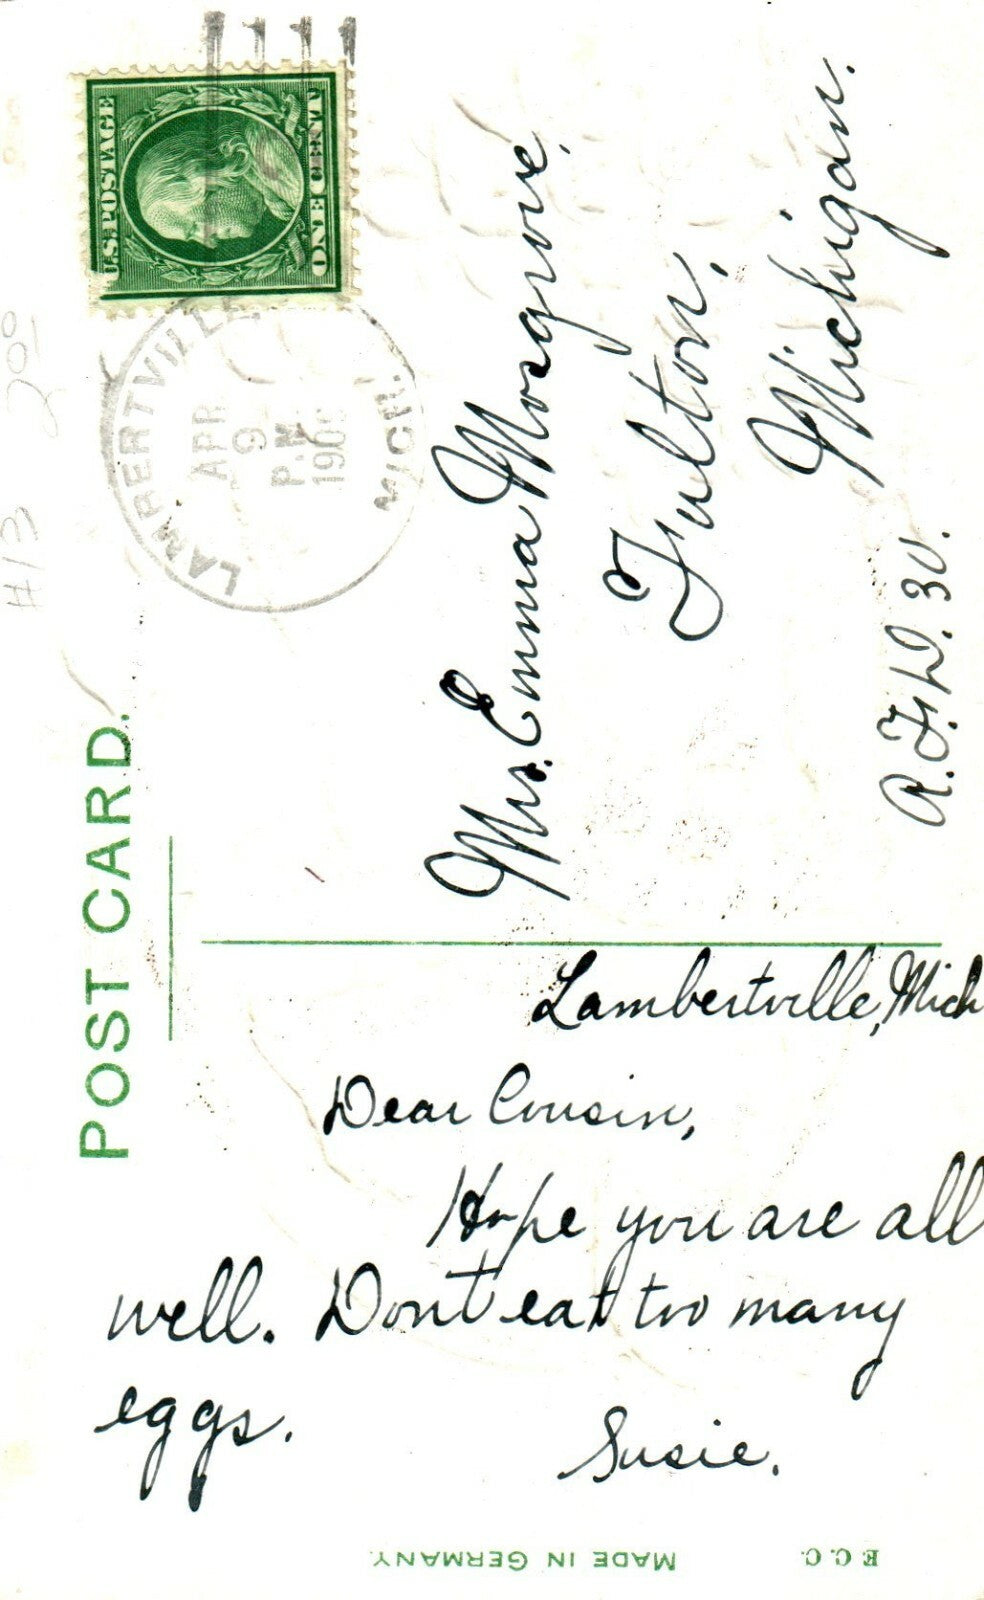 POST CARD.
U.S. POSTAGE
ONE CENT
LAMBERTVILLE
MICH.
APR
9
P.M.
#13 200
Mrs. Emma Mosgrove,
Fulton,
Michigan.
R.F.D. 30.
Lambertville, Mich
Dear Cousin,
Hope you are all
well. Dont eat too many
eggs.
Susie.
E.C.C. MADE IN GERMANY.